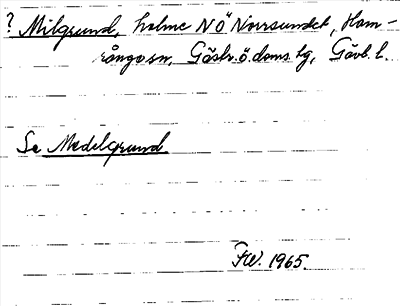 ? Milgrund, holme NÖ Norrsundet, Ham-
rånge sn, Gästr. ö. doms. hg, Gävb. l.
Se Medelgrund
FW. 1965